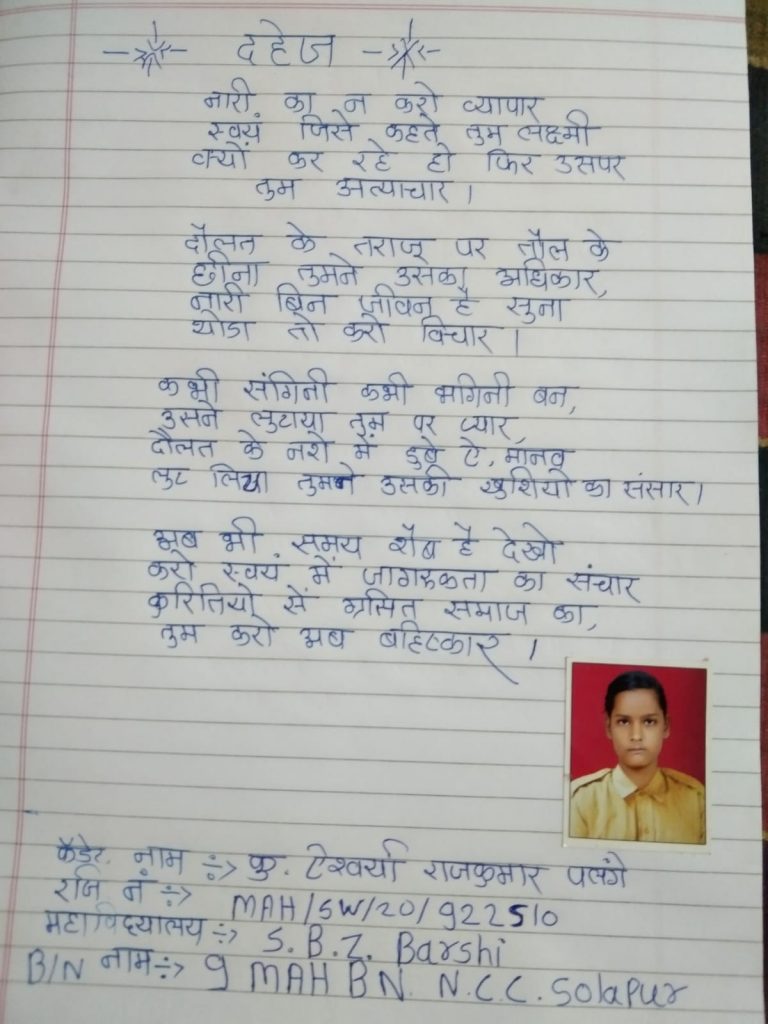 दहेज
नारी का न करो व्यापार
स्वयं जिसे कहते तुम लक्ष्मी
क्यों कर रहे हो फिर उसपर
तुम अत्याचार ।
दौलत के तराजू पर तौल के
छीना तुमने उसका अधिकार,
नारी बिन जीवन है सुना
थोडा तो करो विचार ।
कभी संगिनी कभी भगिनी बन,
उसने लुटाया तुम पर प्यार,
दौलत के नशे में डुबे ऐ, मानव
लुट लिया तुमने उसकी खुशियो का संसार ।
अब भी समय शेष है देखो
करो स्वयं में जागरुकता का संचार
कुरितियो से ग्रसित समाज का,
तुम करो अब बहिष्कार ।
कॅडेट. नाम ÷> कु. ऐश्वर्या राजकुमार पलंगे
रजि नं ÷> MAH/SW/20/922510
महाविद्यालय ÷> S.B.Z. Barshi
B/N नाम ÷> 9 MAH BN. N.C.C. Solapur